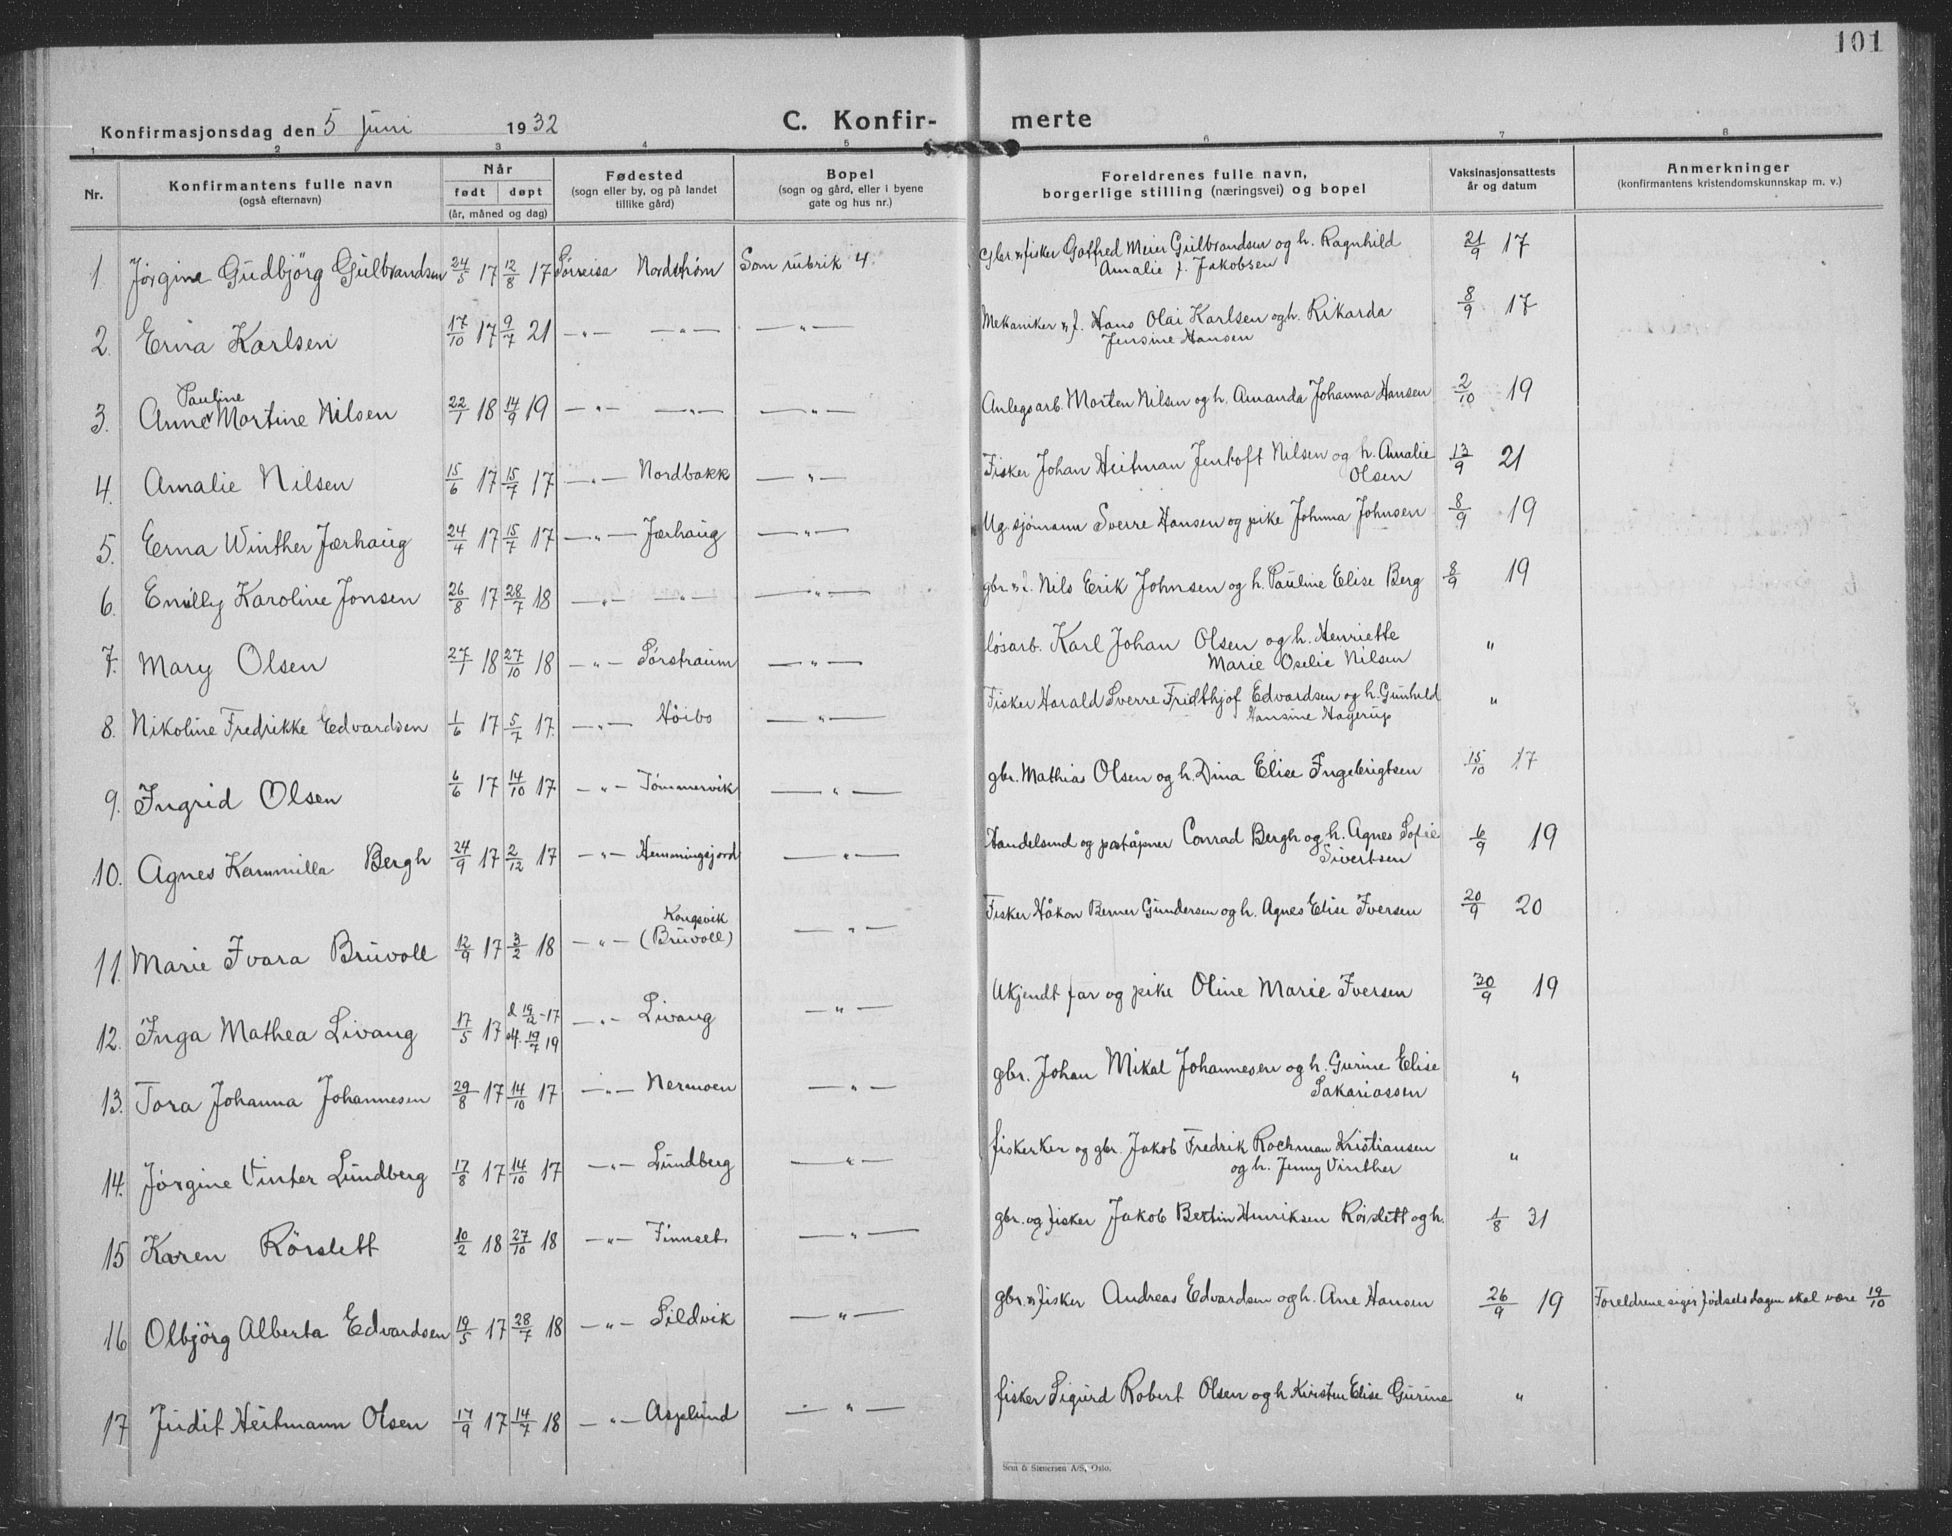 101
Konfirmasjonsdag den 5 Juni 1932 C. Konfir- merte
1 2 3 4 5 6 7 8
Nr. Konfirmantens fulle navn (også efternavn) Når født døpt (år, måned og dag) Fødested (sogn eller by, og på landet tillike gård) Bopel (sogn og gård, eller i byene gate og hus nr.) Foreldrenes fulle navn, borgerlige stilling (næringsvei) og bopel Vaksinasjonsattests år og datum Anmerkninger (konfirmantens kristendomskunnskap m. v.)
1. Jörgine Gudbjörg Gulbrandsen 24/5 17 12/8 17 Sörreisa Nordstrøm Som rubrik 4. Gbr. & fisker Gotfred Meier Gulbrandsen og h. Ragnhild 21/9 17
Amalie f. Jakobsen
2. Erna Karlsen 17/10 17 9/7 21 —„— —„— —„— Mekaniker & f. Hans Olai Karlsen og h. Rikarda 8/9 17
Jensine Hansen
Pauline
3. Anne Martine Nilsen 22/1 18 14/9 19 —„— —„— —„— Anlegsarb. Morten Nilsen og h. Amanda Johanna Hansen 2/10 19
4. Amalie Nilsen 15/6 17 15/7 17 —„— Nordbakk —„— Fisker Johan Heitman Jentoft Nilsen og h. Amalie 13/9 21
Olsen
5. Erna Winther Jærhaug 24/4 17 15/7 17 —„— Jærhaug —„— Ug. sjömann Sverre Hansen og pike Johnna Johnsen 8/9 19
6. Emilly Karoline Jonsen 26/8 17 28/7 18 —„— —„— —„— gbr. & f. Nils Erik Johnsen og h. Pauline Elise Berg 8/9 19
7. Mary Olsen 27/1 18 27/10 18 —„— Sørstraum —„— løsarb. Karl Johan Olsen og h. Henriette „
Marie Oselie Nilsen
8. Nikoline Fredrikke Edvardsen 1/6 17 5/7 17. —„— Höibo —„— Fisker Harald Sverre Fridthjof Edvardsen og h. Gunhild „
Hansine Hagerup
9. Ingrid Olsen 6/6 17 14/10 17 —„— Tömmervik —„— gbr. Mathias Olsen og h. Dina Elise Ingebrigtsen 15/10 17
10. Agnes Kammilla Bergh 24/9 17 2/12 17 —„— Hemmingsjord —„— Handelsmd og poståpner Conrad Bergh og h. Agnes Sofie 6/9 19
Sivertsen
Kongsvik
11. Marie Ivara Bruvoll 12/9 17 3/2 18 —„— (Bruvoll) —„— Fisker Håkon Berner Gundersen og h. Agnes Elise Iversen 20/9 20
12. Inga Mathea Livang 17/5 17 19/12-17 19/7 19 —„— Livang —„— Ukjendt far og pike Oline Marie Iversen 30/9 19
13. Tora Johanna Johannesen 29/8 17 14/10 17 —„— Nermoen —„— gbr. Johan Mikal Johannesen og h. Gurine Elise „
Sakariassen
14. Jörgine Vinter Lundberg 17/8 17 14/10 17 —„— Lundberg —„— fiskerker og gbr. Jakob Fredrik Rochman Kristiansen „
og h. Jenny Vinther
15 Karen Rörslett 10/2 18 27/10 18 —„— Finnset. —„— gbr. og fisker Jakob Bertin Henriksen Rörslett og h. 1/8 31
16 Olbjörg Alberta Edvardsen 19/5 17 28/7 18 —„— Sildvik —„— gbr. & fisker Andreas Edvardsen og h. Ane Hansen 26/9 19 Foreldrene siger födselsdagen skal være 19/10
17 Judit Heitmann Olsen 17/9 17 14/7 18 —„— Asplund —„— fisker Sigurd Robert Olsen og h. Kirsten Elise Gurine „
Sem & Stenersen A/S, Oslo.